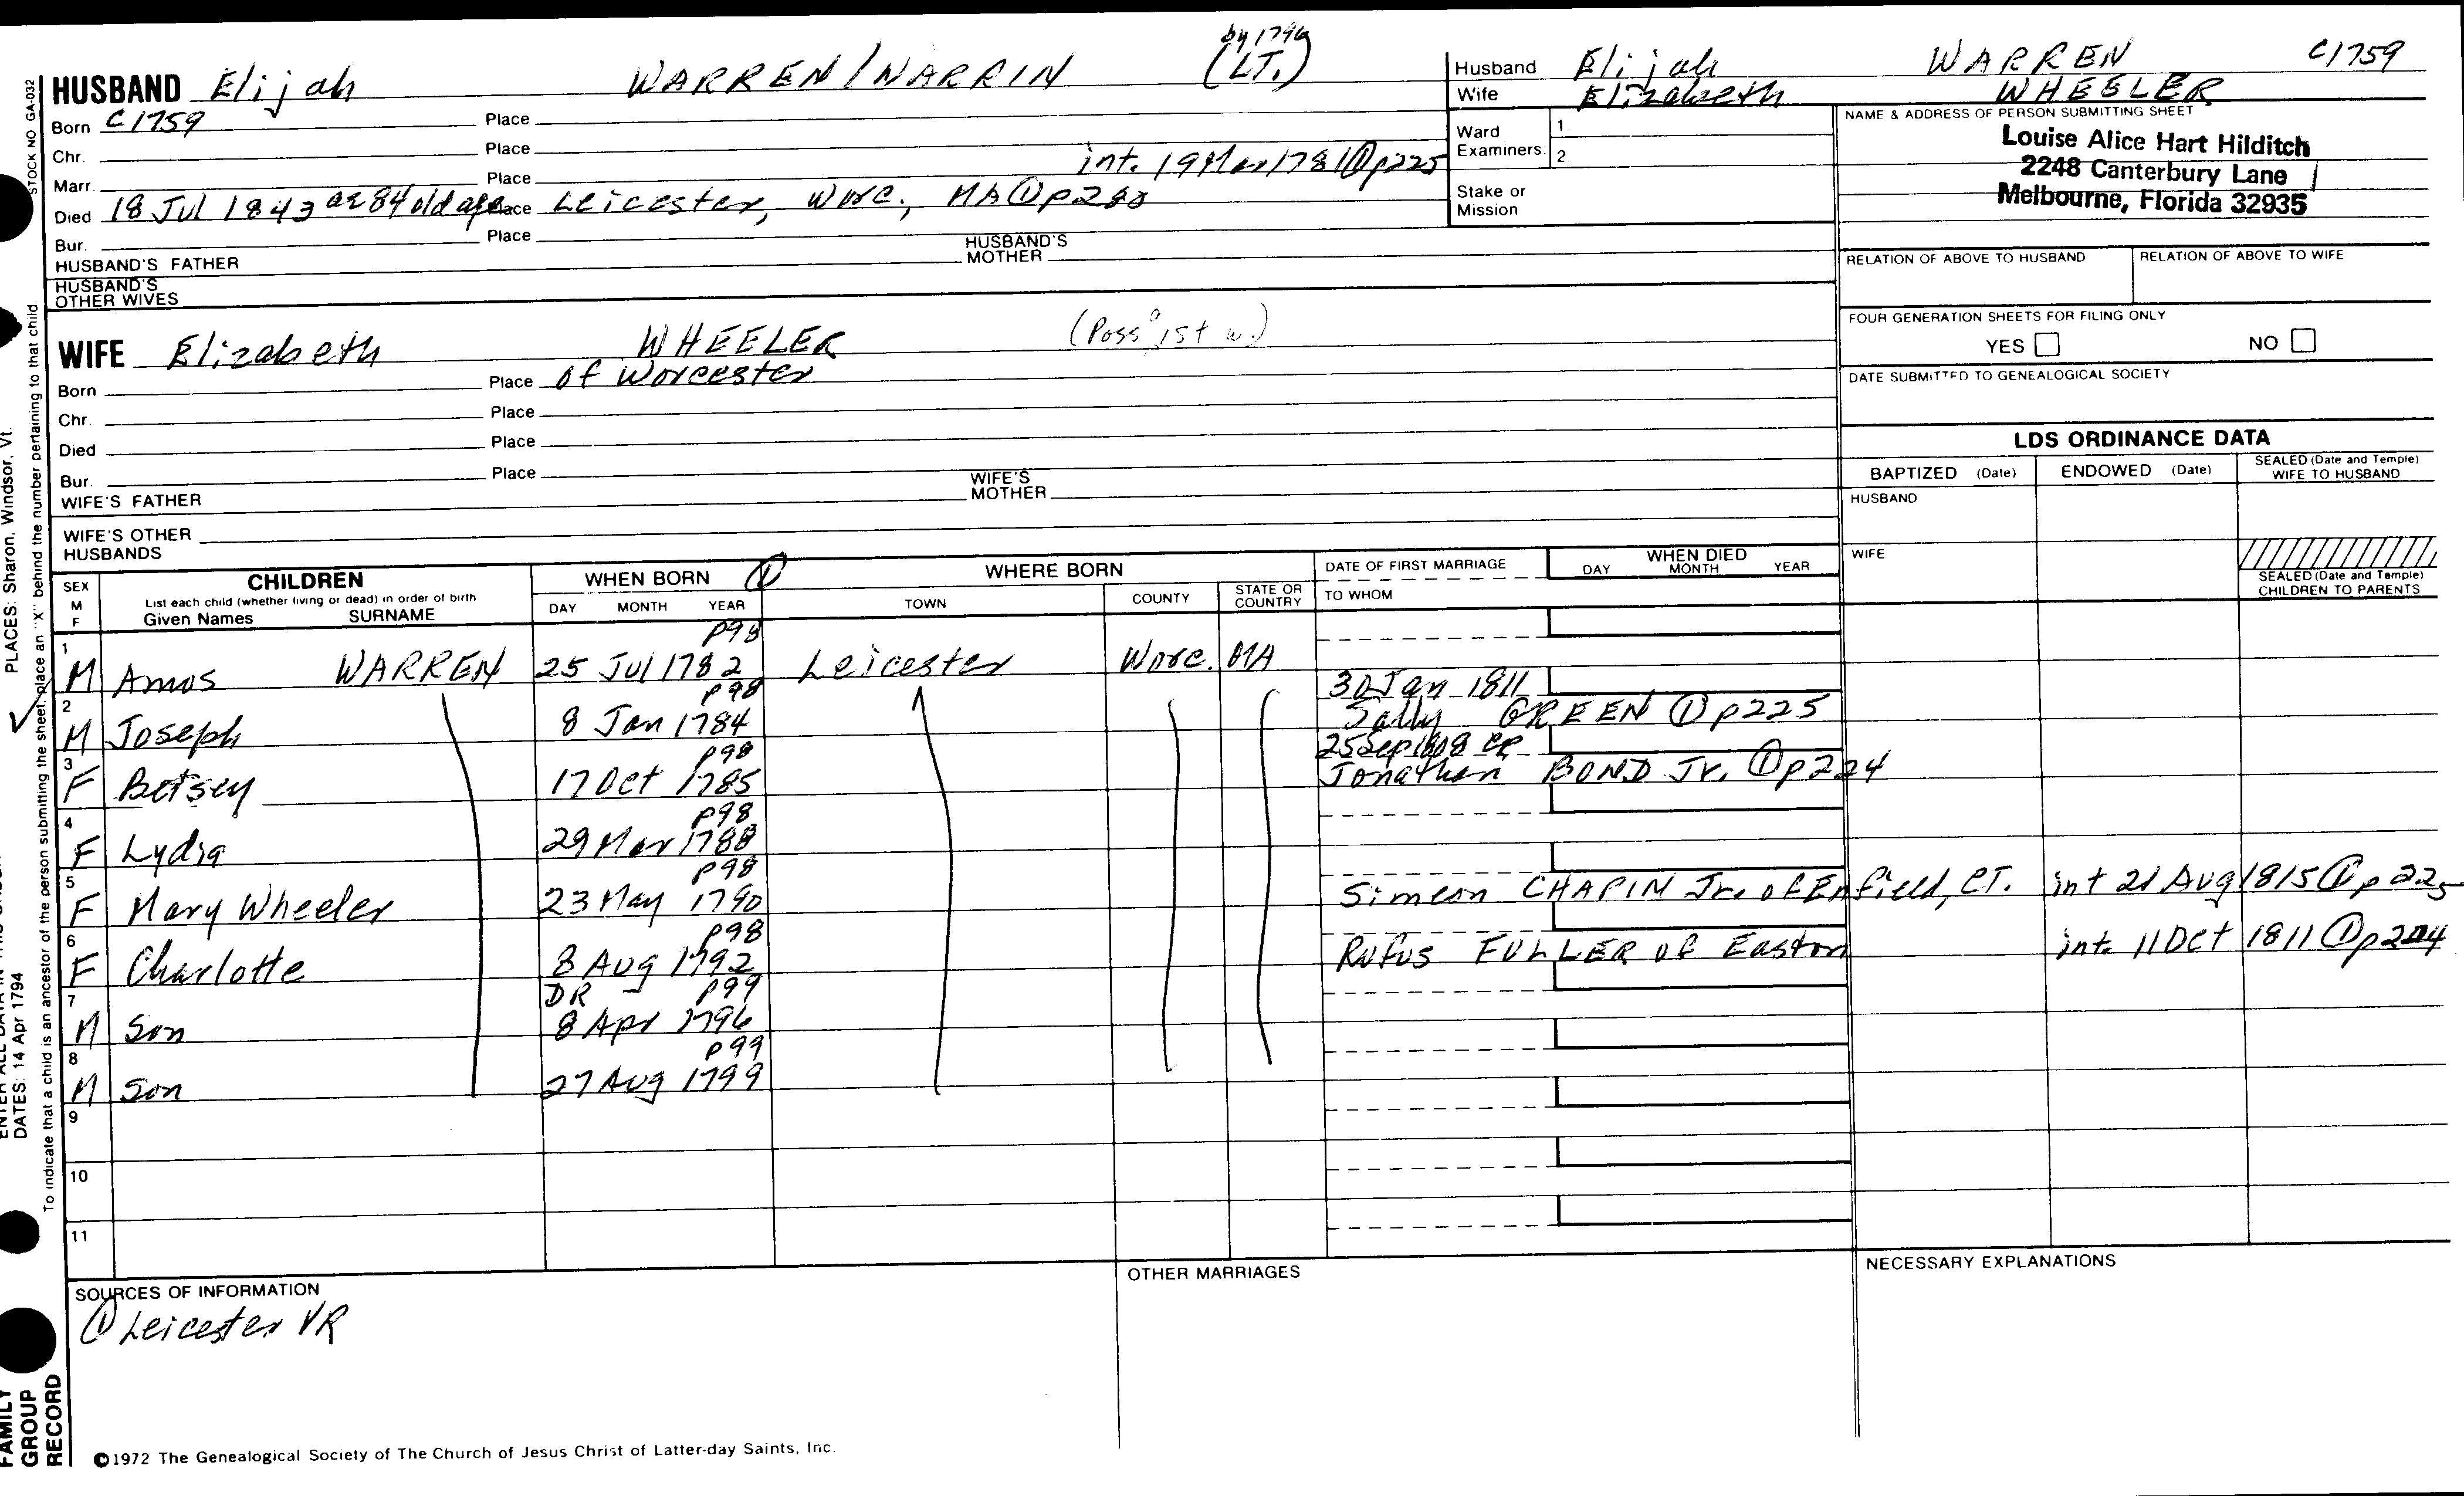 by 1796
HUSBAND Elijah WARREN/WARRIN (LT.)
Born C1759 Place
Chr. Place
int. 19 Mar 1781 ① p225
Marr. Place
Died 18 Jul 1843 ae 84 old age Place Leicester, Worc., MA ① p280
Bur. Place
HUSBAND'S FATHER HUSBAND'S MOTHER
HUSBAND'S OTHER WIVES
WIFE Elizabeth WHEELER (Poss a 1st w.)
Born Place of Worcester
Chr. Place
Died Place
Bur. Place
WIFE'S FATHER WIFE'S MOTHER
WIFE'S OTHER HUSBANDS
Husband Elijah WARREN C1759
Wife Elizabeth WHEELER
Ward Examiners: 1.
2.
Stake or Mission
NAME & ADDRESS OF PERSON SUBMITTING SHEET
Louise Alice Hart Hilditch
2248 Canterbury Lane
Melbourne, Florida 32935
RELATION OF ABOVE TO HUSBAND RELATION OF ABOVE TO WIFE
FOUR GENERATION SHEETS FOR FILING ONLY
YES NO
DATE SUBMITTED TO GENEALOGICAL SOCIETY
LDS ORDINANCE DATA
BAPTIZED (Date) ENDOWED (Date) SEALED (Date and Temple) WIFE TO HUSBAND
HUSBAND
WIFE
SEALED (Date and Temple) CHILDREN TO PARENTS
SEX M F
CHILDREN
List each child (whether living or dead) in order of birth
Given Names SURNAME
WHEN BORN ①
DAY MONTH YEAR
WHERE BORN
TOWN COUNTY STATE OR COUNTRY
DATE OF FIRST MARRIAGE
TO WHOM
WHEN DIED
DAY MONTH YEAR
p98
1 M Amos WARREN 25 Jul 1782 Leicester Worc. MA
p98 30 Jan 1811
2 M Joseph 8 Jan 1784 Sally GREEN ① p225
p98 25 Sep 1808 CR
3 F Betsey 17 Oct 1785 Jonathan BOND Jr. ① p224
p98
4 F Lydia 29 Mar 1788
p98
5 F Mary Wheeler 23 May 1790 Simeon CHAPIN Jr. of Enfield, CT. int 21 Aug 1815 ① p 225
p98
6 F Charlotte 8 Aug 1792 Rufus FULLER of Easton int. 11 Oct 1811 ① p224
DR p99
7 M Son 8 Apr 1796
p99
8 M Son 27 Aug 1799
9
10
11
SOURCES OF INFORMATION
① Leicester VR
OTHER MARRIAGES
NECESSARY EXPLANATIONS
©1972 The Genealogical Society of The Church of Jesus Christ of Latter-day Saints, Inc.
STOCK NO GA-032
To indicate that a child is an ancestor of the person submitting the sheet, place an "X" behind the number pertaining to that child.
PLACES: Sharon, Windsor, Vt.
DATES: 14 Apr 1794
FAMILY GROUP RECORD